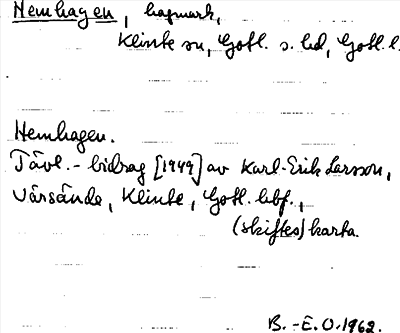 Hemhagen, hagmark,
Klinte sn, Gotl. s. hd, Gotl. l.
Hemhagen.
Tävl.-bidrag [1949] av Karl-Erik Larsson,
Värsände, Klinte, Gotl. hbf.,
(skiftes)karta.
B.-E.O. 1962.